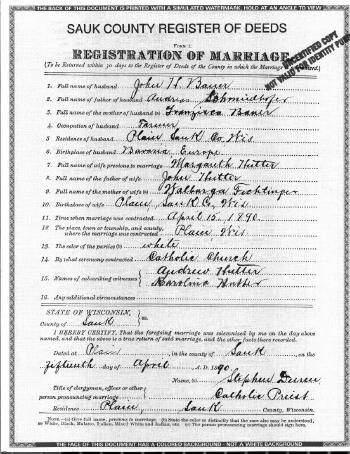 THE BACK OF THIS DOCUMENT IS PRINTED WITH A SIMULATED WATERMARK, HOLD AT AN ANGLE TO VIEW
SAUK COUNTY REGISTER OF DEEDS
UNCERTIFIED COPY
NOT VALID FOR IDENTITY
FORM 1.
REGISTRATION OF MARRIAGE.
(To be Returned within 30 days to the Register of Deeds of the County in which the Marriage
1. Full name of husband John H. Bauer
2. Full name of father of husband Andreas
3. Full name of the mother of husband Franzisca Bauer
4. Occupation of husband Farmer
5. Residence of husband Plain Sauk Co. Wis
6. Birthplace of husband Bavaria Europe
7. Full name of wife previous to marriage Margareth Hutter
8. Full name of the father of wife John Hutter
9. Full name of the mother of wife Walburga
10. Birthplace of wife Plain, Sauk Co, Wis
11. Time when marriage was contracted April 15, 1890.
12. The place, town or township, and county, where the marriage was contracted Plain Wis
13. The color of the parties white
14. By what ceremony contracted Catholic Church
15. Names of subscribing witnesses Andrew Hutter
Karolina Hutter
16. Any additional circumstances
STATE OF WISCONSIN, ss.
County of Sauk
I HEREBY CERTIFY, That the foregoing marriage was solemnized by me on the day above
named, and that the above is a true return of said marriage, and the other facts there recorded.
Dated at Plain, in the county of Sauk, on the
fifteenth day of April A. D. 1890
Name, Stephen
Title of clergyman, officer or other person pronouncing marriage Catholic Priest
Residence Plain, Sauk County, Wisconsin.
THE FACE OF THIS DOCUMENT HAS A COLORED BACKGROUND - NOT A WHITE BACKGROUND